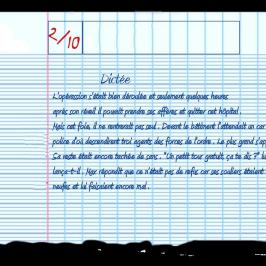 2/10
Dictée
L'opération s'était bien déroulée et seulement quelques heures
après son réveil il pouvait prendre ses affaires et quitter cet hôpital.
Mais cet fois, il ne rentrerait pas seul. Devant le bâtiment l'attendait un car
police d'où descendirent trois agents des forces de l'ordre. Le plus grand s'ap
Sa veste était encore tachée de sang. "Un petit tour gratuit, ça te dis ?" lu
lança-t-il. Mar répondit que ce n'était pas de refus car ses souliers étaient
neufs et lui faisaient encore mal.